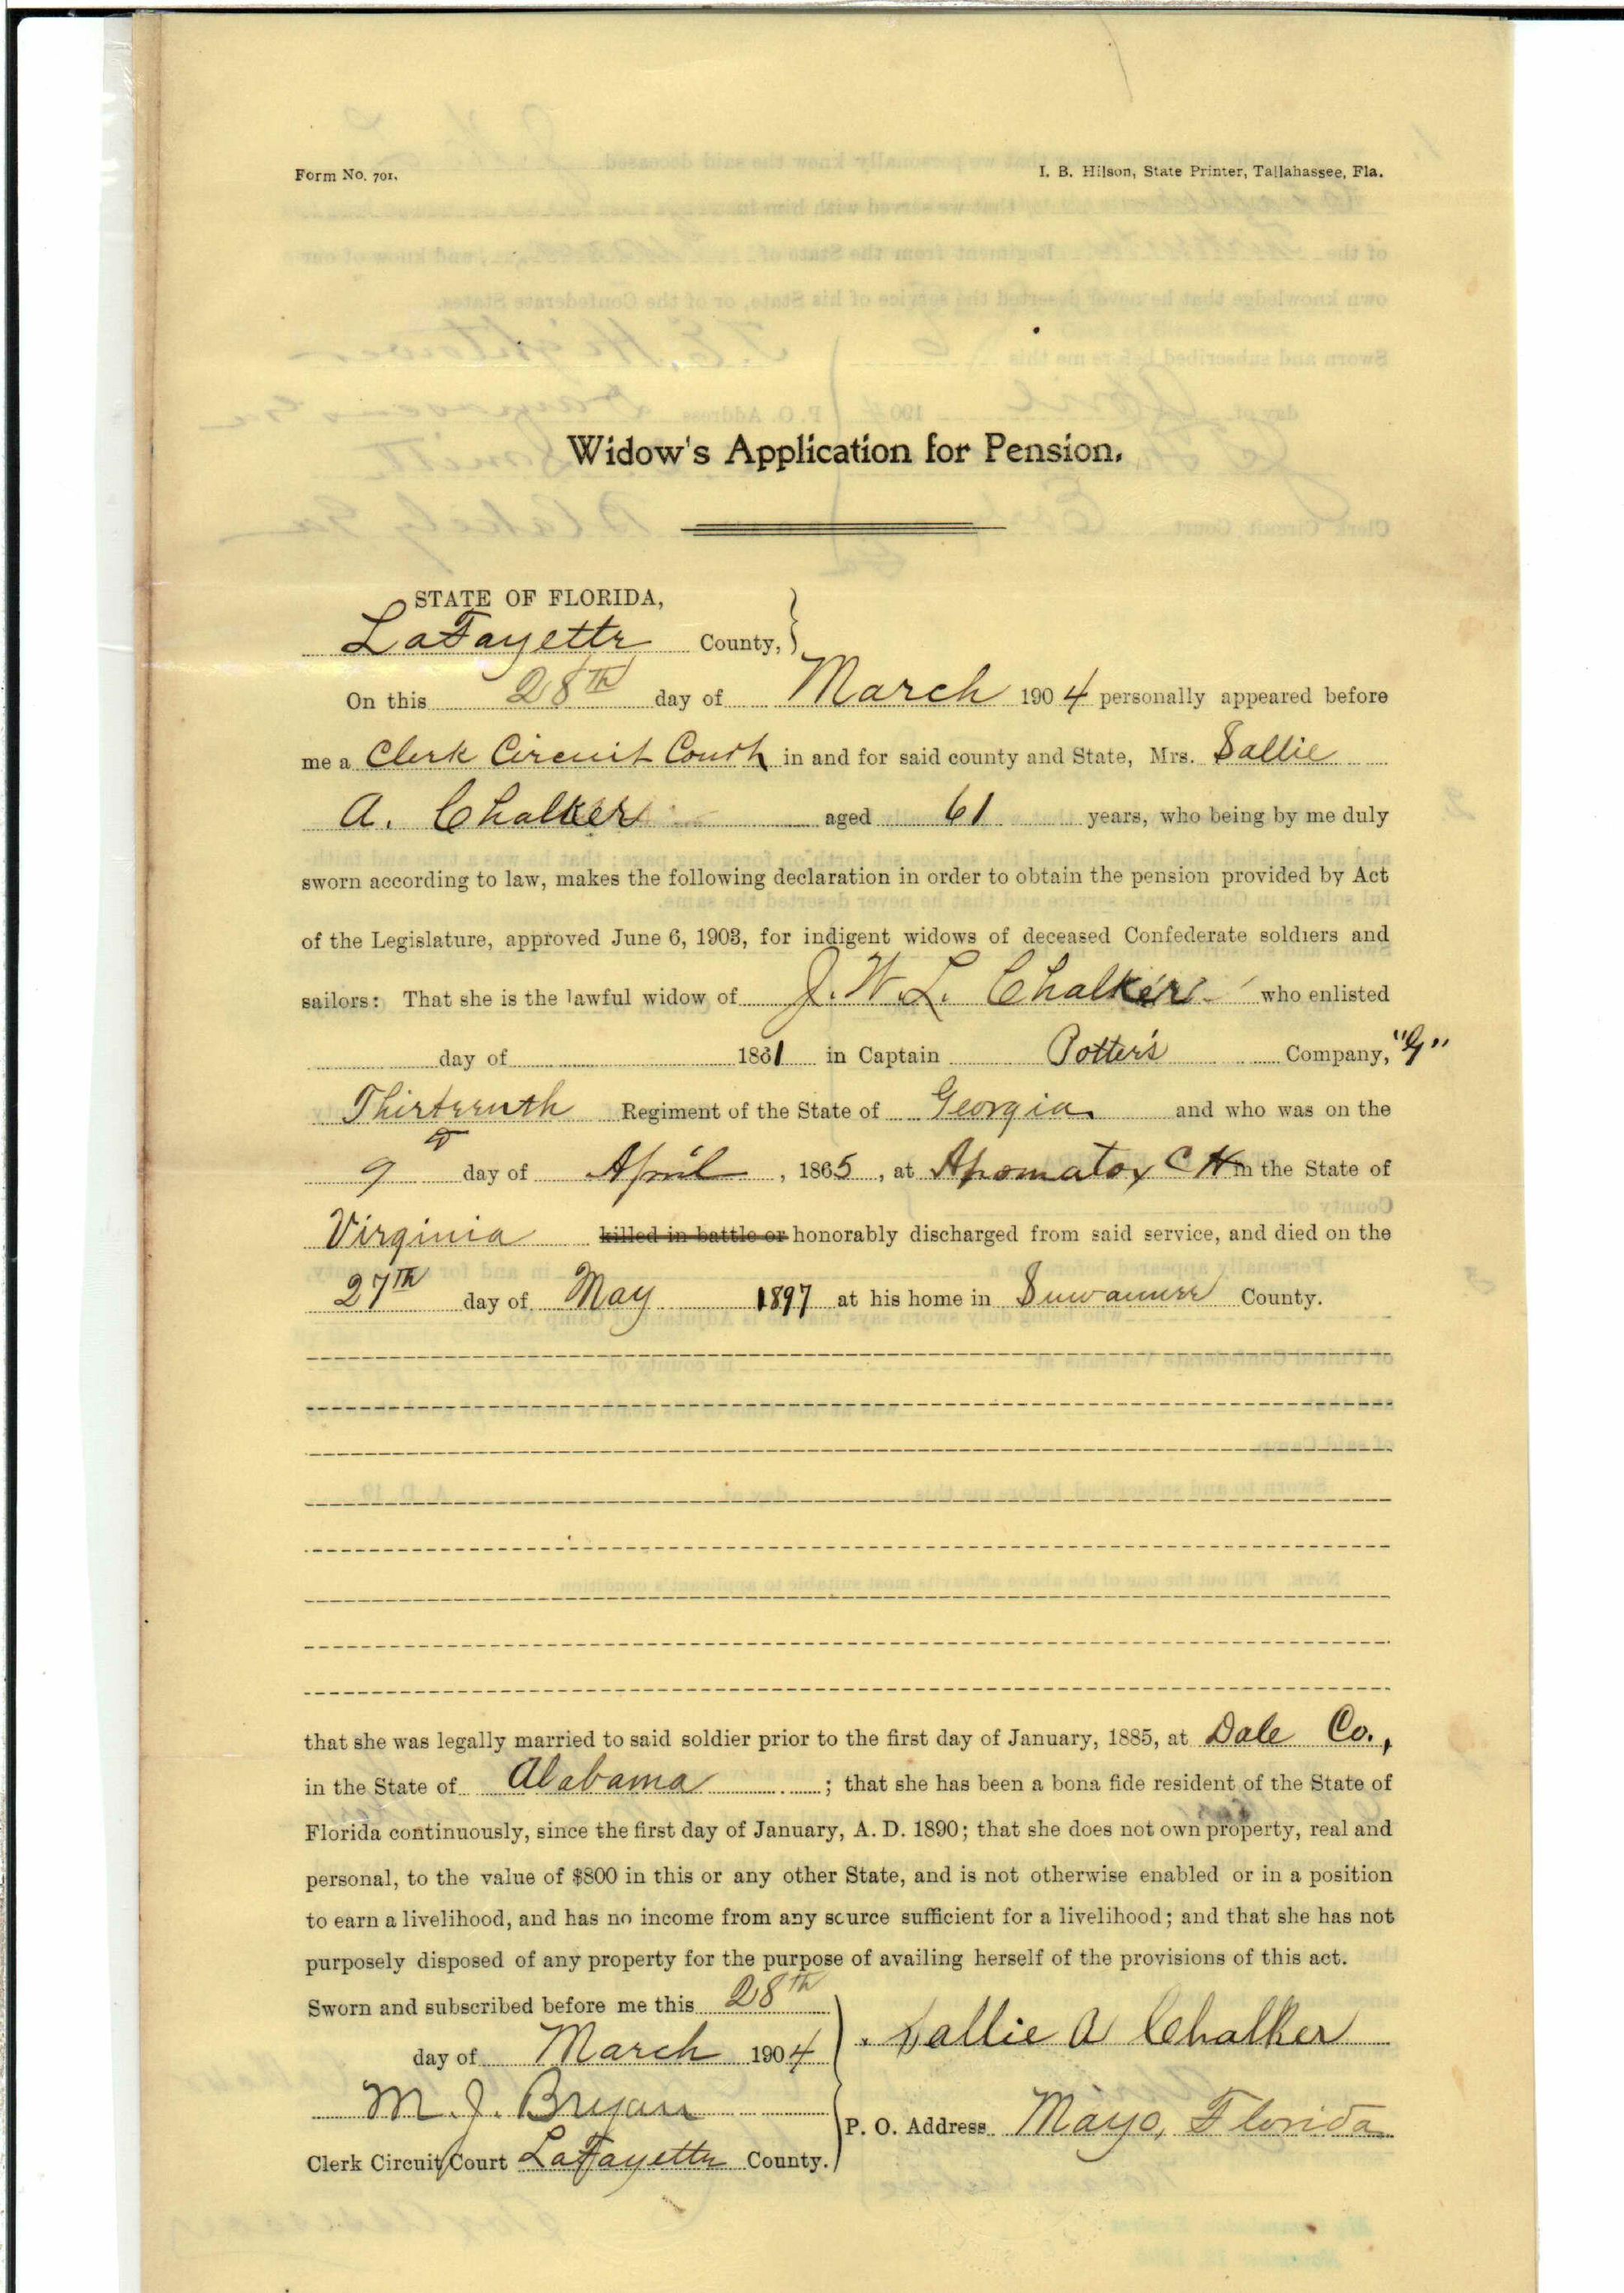 Form No. 701.
I. B. Hilson, State Printer, Tallahassee, Fla.
Widow's Application for Pension.
STATE OF FLORIDA,
LaFayette County,
On this 28th day of March 1904 personally appeared before
me a Clerk Circuit Court in and for said county and State, Mrs. Sallie
A. Chalker aged 61 years, who being by me duly
sworn according to law, makes the following declaration in order to obtain the pension provided by Act
of the Legislature, approved June 6, 1903, for indigent widows of deceased Confederate soldiers and
sailors: That she is the lawful widow of J. W. L. Chalker who enlisted
day of 1861 in Captain Potter's Company, "G"
Thirteenth Regiment of the State of Georgia and who was on the
9 day of April, 1865, at Apomatox C H in the State of
Virginia killed in battle or honorably discharged from said service, and died on the
27th day of May 1897 at his home in Suwannee County.
that she was legally married to said soldier prior to the first day of January, 1885, at Dale Co.,
in the State of Alabama; that she has been a bona fide resident of the State of
Florida continuously, since the first day of January, A. D. 1890; that she does not own property, real and
personal, to the value of $800 in this or any other State, and is not otherwise enabled or in a position
to earn a livelihood, and has no income from any source sufficient for a livelihood; and that she has not
purposely disposed of any property for the purpose of availing herself of the provisions of this act.
Sworn and subscribed before me this 28th
day of March 1904
Sallie A Chalker
M. J. Bryan
P. O. Address Mayo, Florida
Clerk Circuit Court LaFayette County.